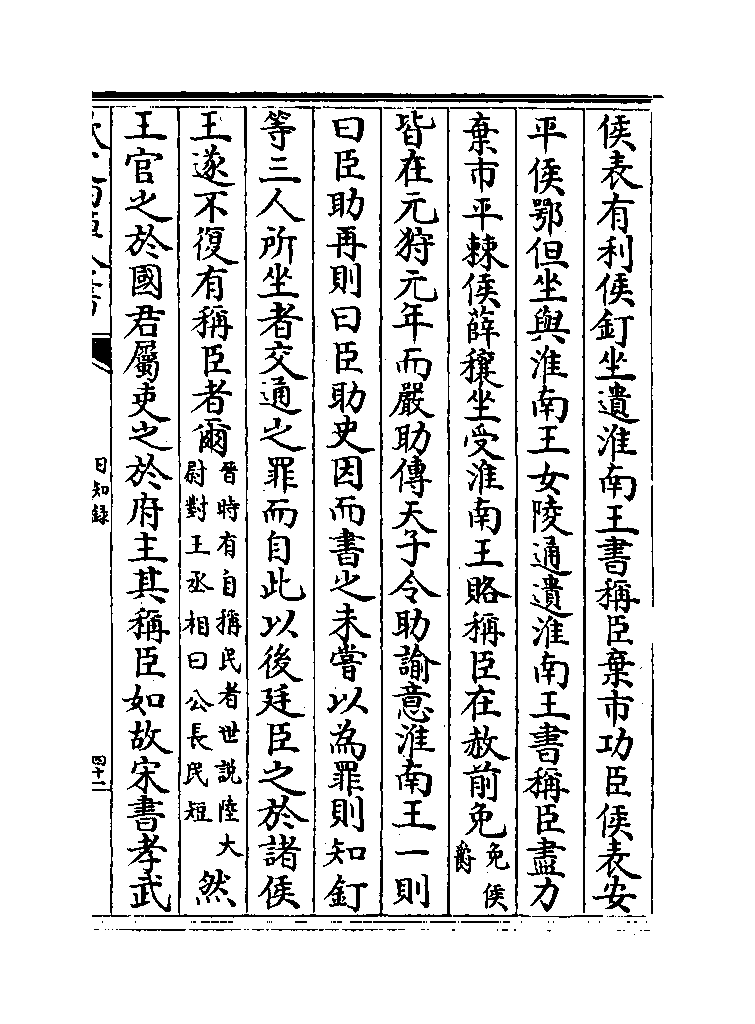 侯表有利侯釘坐遺淮南王書稱臣棄市功臣侯表安
平侯鄂但坐與淮南王女陵通遺淮南王書稱臣盡力
棄市平棘侯薛穰坐受淮南王賂稱臣在赦前免免侯爵
皆在元狩元年而嚴助傳天子令助諭意淮南王一則
曰臣助再則曰臣助史因而書之未嘗以為罪則知釘
等三人所坐者交通之罪而自此以後廷臣之於諸侯
王遂不復有稱臣者爾晉時有自稱民者世說陸大尉對王丞相曰公長民短然
王官之於國君屬吏之於府主其稱臣如故宋書孝武
日知錄
四十二